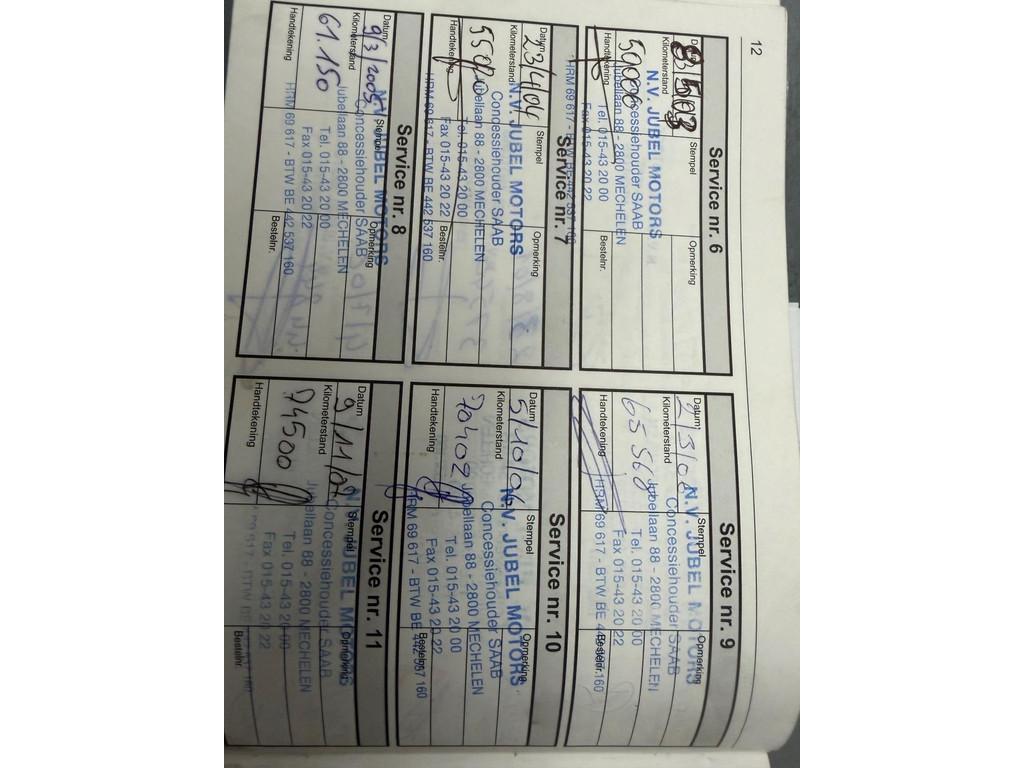 12
Service nr. 6
Datum
Stempel
8/5/03
Kilometerstand
50000
Handtekening
N.V. JUBEL MOTORS
Concessiehouder SAAB
Jubellaan 88 - 2800 MECHELEN
Tel. 015-43 20 00
Fax 015-43 20 22
HRM 69 617 - BTW BE 442 537 160
Bestelnr.
Service nr. 7
Datum
Stempel
Opmerking
23/4/04
Kilometerstand
Handtekening
N.V. JUBEL MOTORS
Concessiehouder SAAB
Jubellaan 88 - 2800 MECHELEN
Tel. 015-43 20 00
Fax 015-43 20 22
HRM 69 617 - BTW BE 442 537 160
Bestelnr.
Service nr. 8
Datum
Stempel
Opmerking
9/3/2005
Kilometerstand
61.150
Handtekening
N.V. JUBEL MOTORS
Concessiehouder SAAB
Jubellaan 88 - 2800 MECHELEN
Tel. 015-43 20 00
Fax 015-43 20 22
HRM 69 617 - BTW BE 442 537 160
Bestelnr.
Service nr. 9
Datum
Stempel
Opmerking
Kilometerstand
65560
Handtekening
N.V. JUBEL MOTORS
Concessiehouder SAAB
Jubellaan 88 - 2800 MECHELEN
Tel. 015-43 20 00
Fax 015-43 20 22
HRM 69 617 - BTW BE 442 537 160
Bestelnr.
Service nr. 10
Datum
Stempel
Opmerking
5/10/06
Kilometerstand
70402
Handtekening
N.V. JUBEL MOTORS
Concessiehouder SAAB
Jubellaan 88 - 2800 MECHELEN
Tel. 015-43 20 00
Fax 015-43 20 22
HRM 69 617 - BTW BE 442 537 160
Bestelnr.
Service nr. 11
Datum
Stempel
Opmerking
9/11/07
Kilometerstand
74500
Handtekening
N.V. JUBEL MOTORS
Concessiehouder SAAB
Jubellaan 88 - 2800 MECHELEN
Tel. 015-43 20 00
Fax 015-43 20 22
69 617 - BTW BE 442 537 160
Bestelnr.